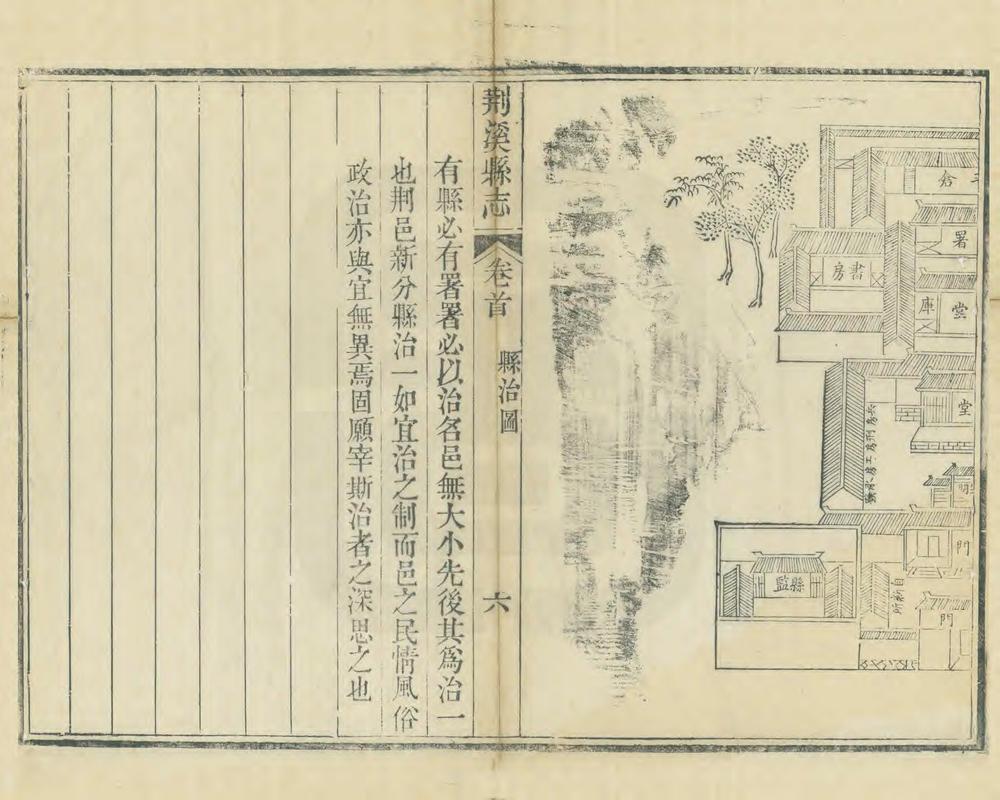 倉
署
書房
庫
堂
堂
門
縣監
門
荆溪縣志
卷首
縣治圖
六
有縣必有署署必以治名邑無大小先後其爲治一
也荆邑新分縣治一如宜治之制而邑之民情風俗
政治亦與宜無異焉固願宰斯治者之深思之也